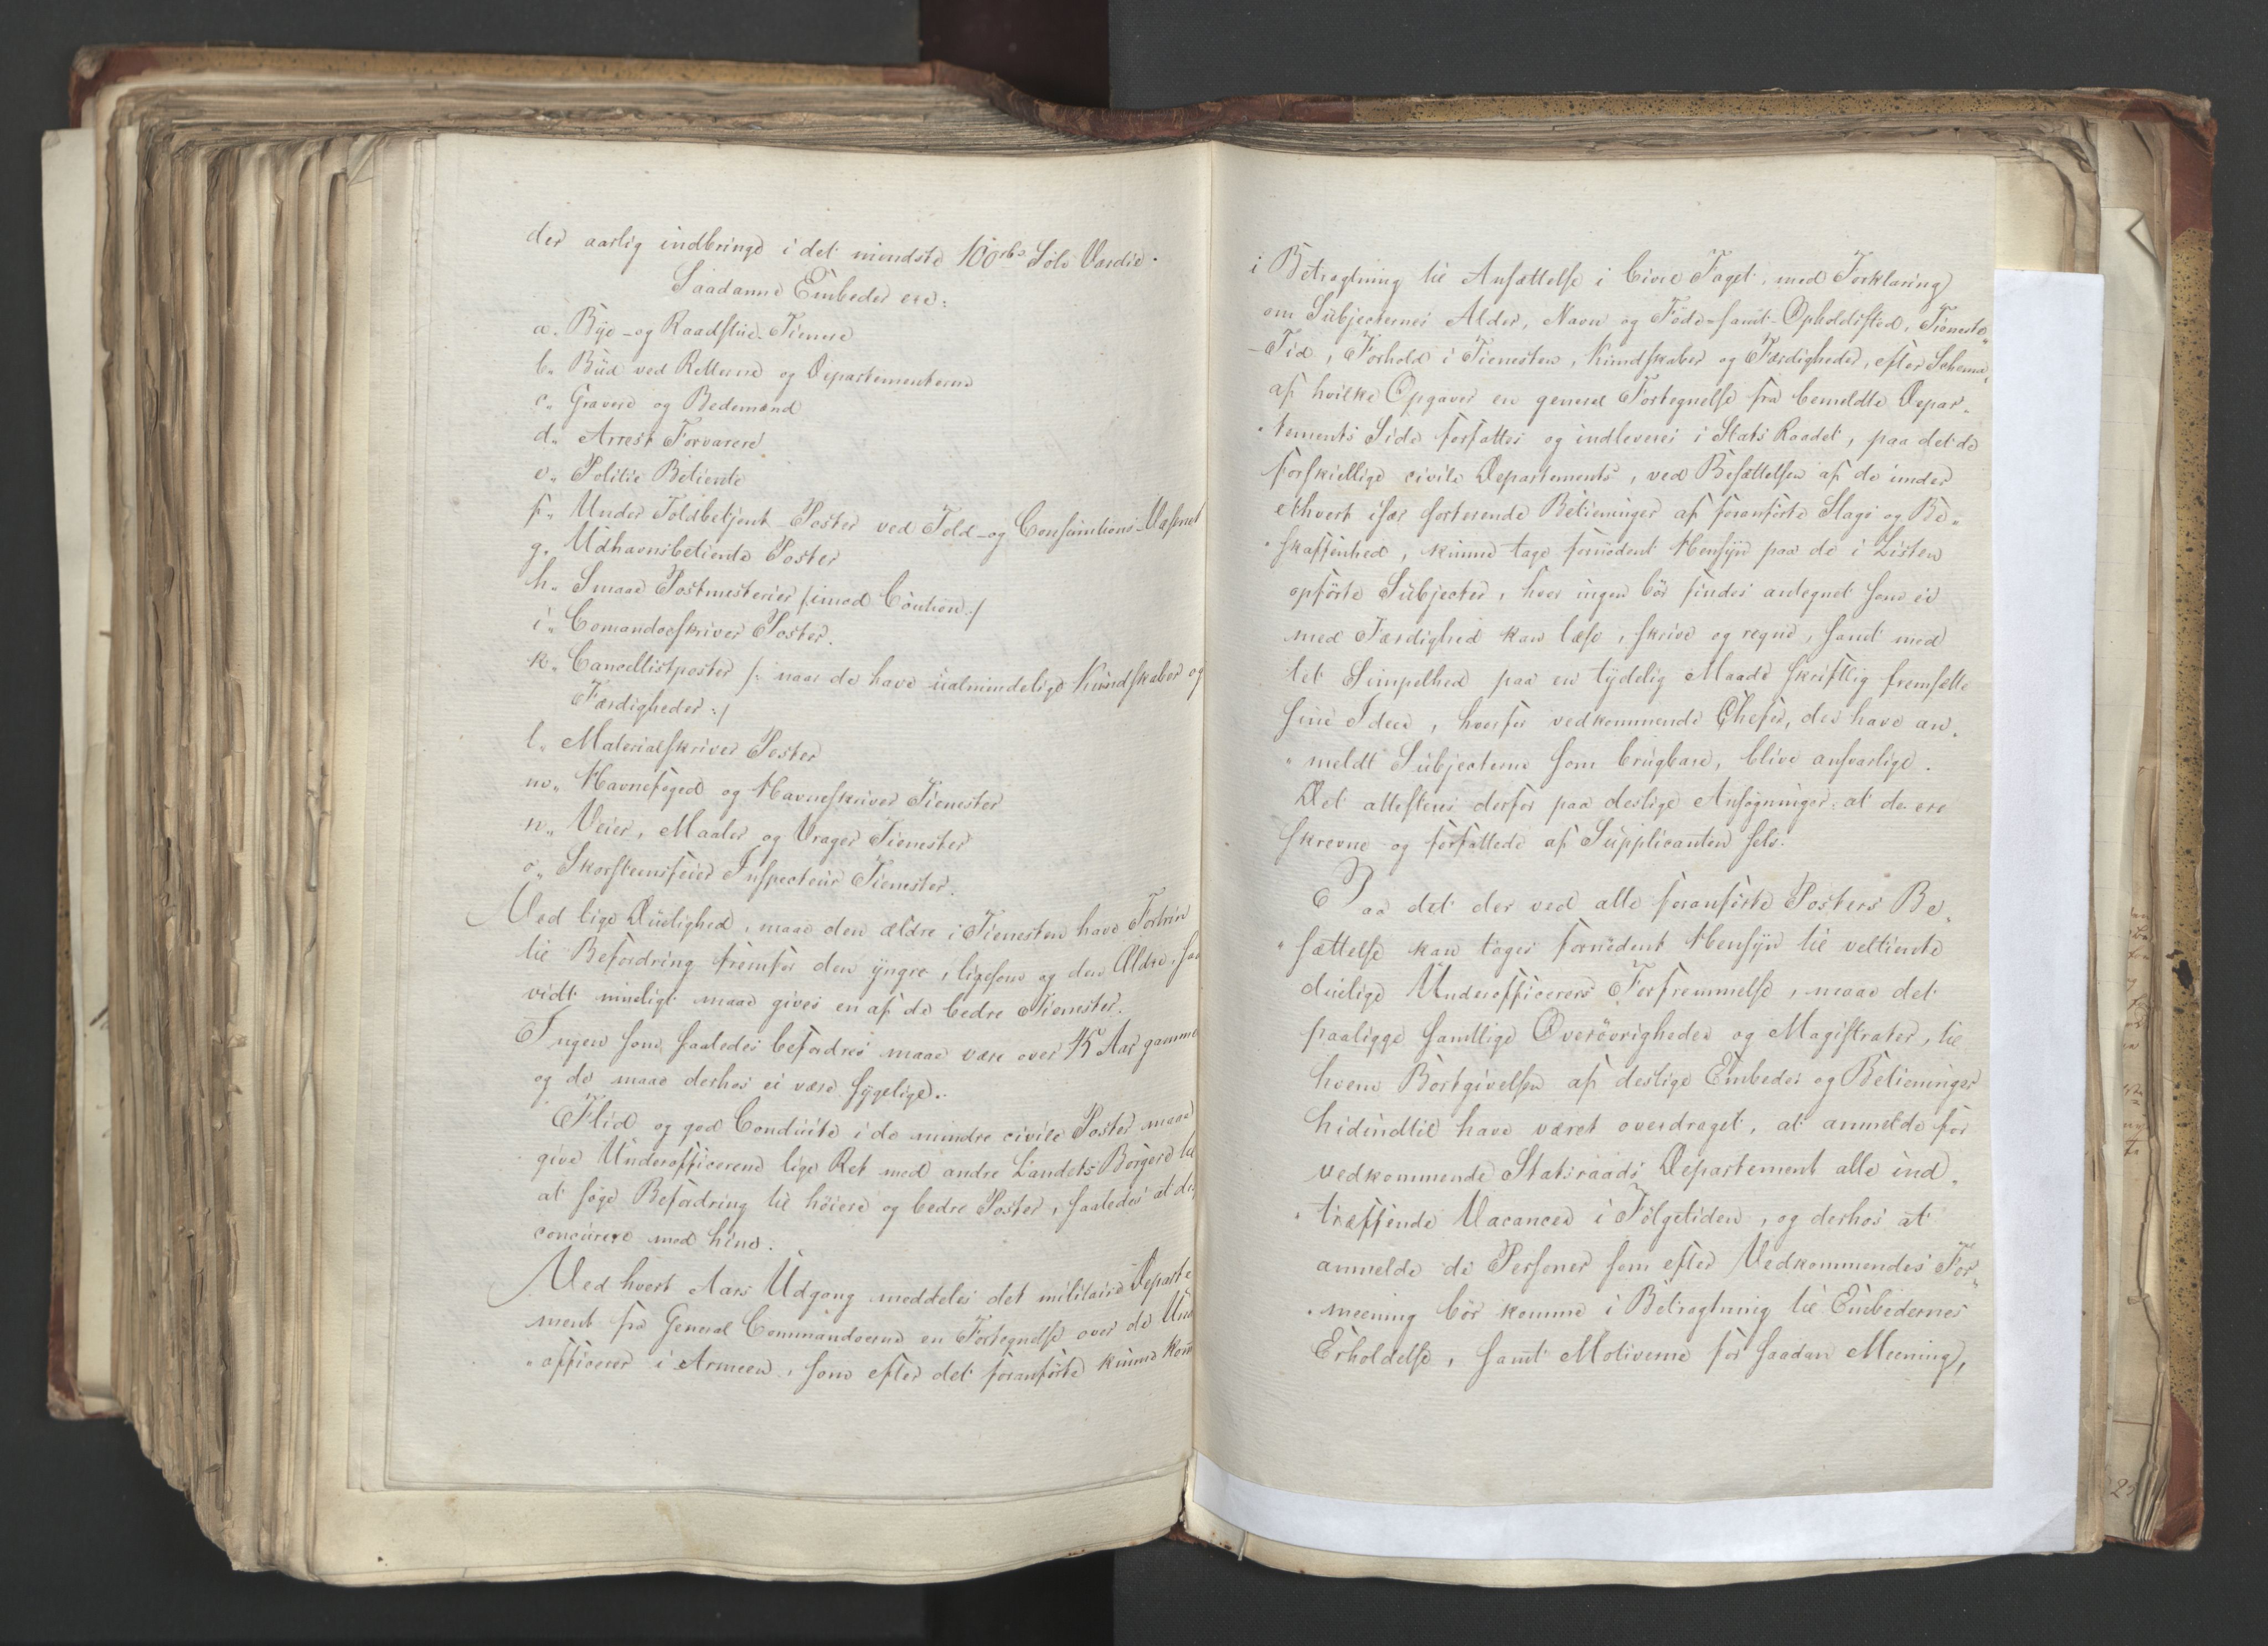 der aarlig indbringe i det mindste 100 rbd Sölv Værdie.
Saadanne Embeder ere:
a. Bye- og Raadstue-Tienere
b. Bud ved Retterne og Departementerne
c. Gravere og Bedemænd
d. Arrest Forvarere
e. Politie Betiente
f. Under Toldbetjent-Poster ved Told- og Consumtions-Væsnet
g. Udhavnsbetiente Poster
h. Smaae Postmesterier /:imod Caution:/
i. Comandoeskriver Poster.
k. Cancellistposter /: naar de have ualmindelige Kundskaber og
Færdigheder:/
l. Materialskriver Poster
m. Havnefoged og Havneskriver Tienester
n. Veier, Maaler og Vrager Tienester
o. Skorsteensfeier Inspecteur Tienester.
Ved lige Duelighed, maae den ældre i Tienesten have Fortrin
til Befordring fremfor den yngre, ligesom og den Ældre, saa
vidt mueligt maae gives en af de bedre Tienester.
Ingen som saaledes befordres maae være over 45 Aar gamme
og de maae derhos ei være sygelige.
Flid og god Conduite i de mindre civile Poster maae
give Underofficererne lige Ret med andre Landets Borgere til
at söge Befordring til höiere og bedre Poster, saaledes at de
concurere med hine.
Ved hvert Aars Udgang meddeles det militaire Departe
ment fra General Commandoerne en Fortegnelse over de Und
officerer i Armeen, som efter det foranförte kunne kom
i Betragtning til Ansættelse i Civile Faget, med Forklaring
om Subjecternes Alder, Navn og Föde- samt Opholdssted, Tieneste
-Tid, Forhold i Tienesten, Kundskaber og Færdigheder, efter Schema,
af hvilke Opgaver en general Fortegnelse fra bemeldte Depar-
tements Side forfattes og indleveres i Stats Raadet, paa det de
forskiellige civile Departements, ved Besættelsen af de under
ethvert især sorterende Betieninger af foranförte Slags og Be-
skaffenhed, kunne tage fornödent Hensyn paa de i Listen
opförte Subjecter, hvor ingen bör findes antegnet som ei
med Færdighed kan læse, skrive og regne, samt med
let Simpelhed paa en tydelig Maade skriftlig fremsætte
sine Ideer, hvorfor vedkommende Chefer, der have an-
meldt Subjecterne som brugbare, blive ansvarlige.
Det attesteres derfor paa deslige Ansögninger: at de ere
skrevne og forfattede af Supplicanten selv.
Paa det der ved alle foranförte Posters Be-
sættelse kan tages fornödent Hensyn til veltiente
duelige Underofficerers Forfremmelse, maae det
paaligge samtlige Overövrigheder og Magistrater, til
hvem Bortgivelsen af deslige Embeder og Betieninger
hidindtil have været overdraget, at anmelde for
vedkommende Statsraads Departement alle ind-
træffende Vacancer i Fölgetiden, og derhos at
anmelde de Personer som efter Vedkommendes For-
meening bör komme i Betragtning til Embedernes
Erholdelse, samt Motiverne for saadan Meening,